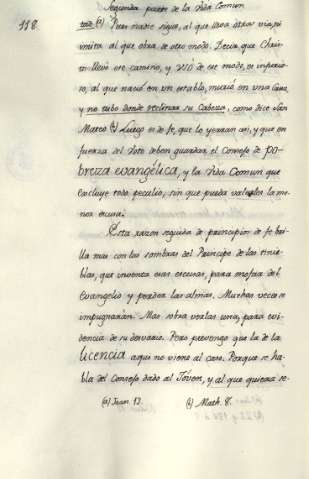 Segunda parte de la Vida Comun
118.
todo (a) Pues nadie sigue, al que lleva otra via, ni
imita al que obra de otro modo. Decir que Chris-
to llevó ese camino, y usó de ese modo, es imposi-
ble, al que nació en un establo, murió en una Cruz,
y no tubo donde reclinar su Cabeza, como dice San
Marco (b) Luego es de fe, que lo yerran asi, y que en
fuerza del Voto deben guardar el Consejo de po-
breza evangélica, y la Vida Comun que
excluye todo peculio, sin que pueda valerles la me-
nor escusa.
Esta razon seguida de principios de fe bri-
lla mas con las sombras del Principe de las tinie-
blas, que inventa esas escusas, para mofar del
Evangelio y perder las almas. Muchas veces se
impugnarán. Mas sobra verlas una, para evi-
dencia de su desvario. Pero prevengo que la de la
licencia aqui no viene al caso. Porque se ha-
bla del Consejo dado al Jóven, y al que quiera se-
(a) Juan. 13. (b) Math. 8.